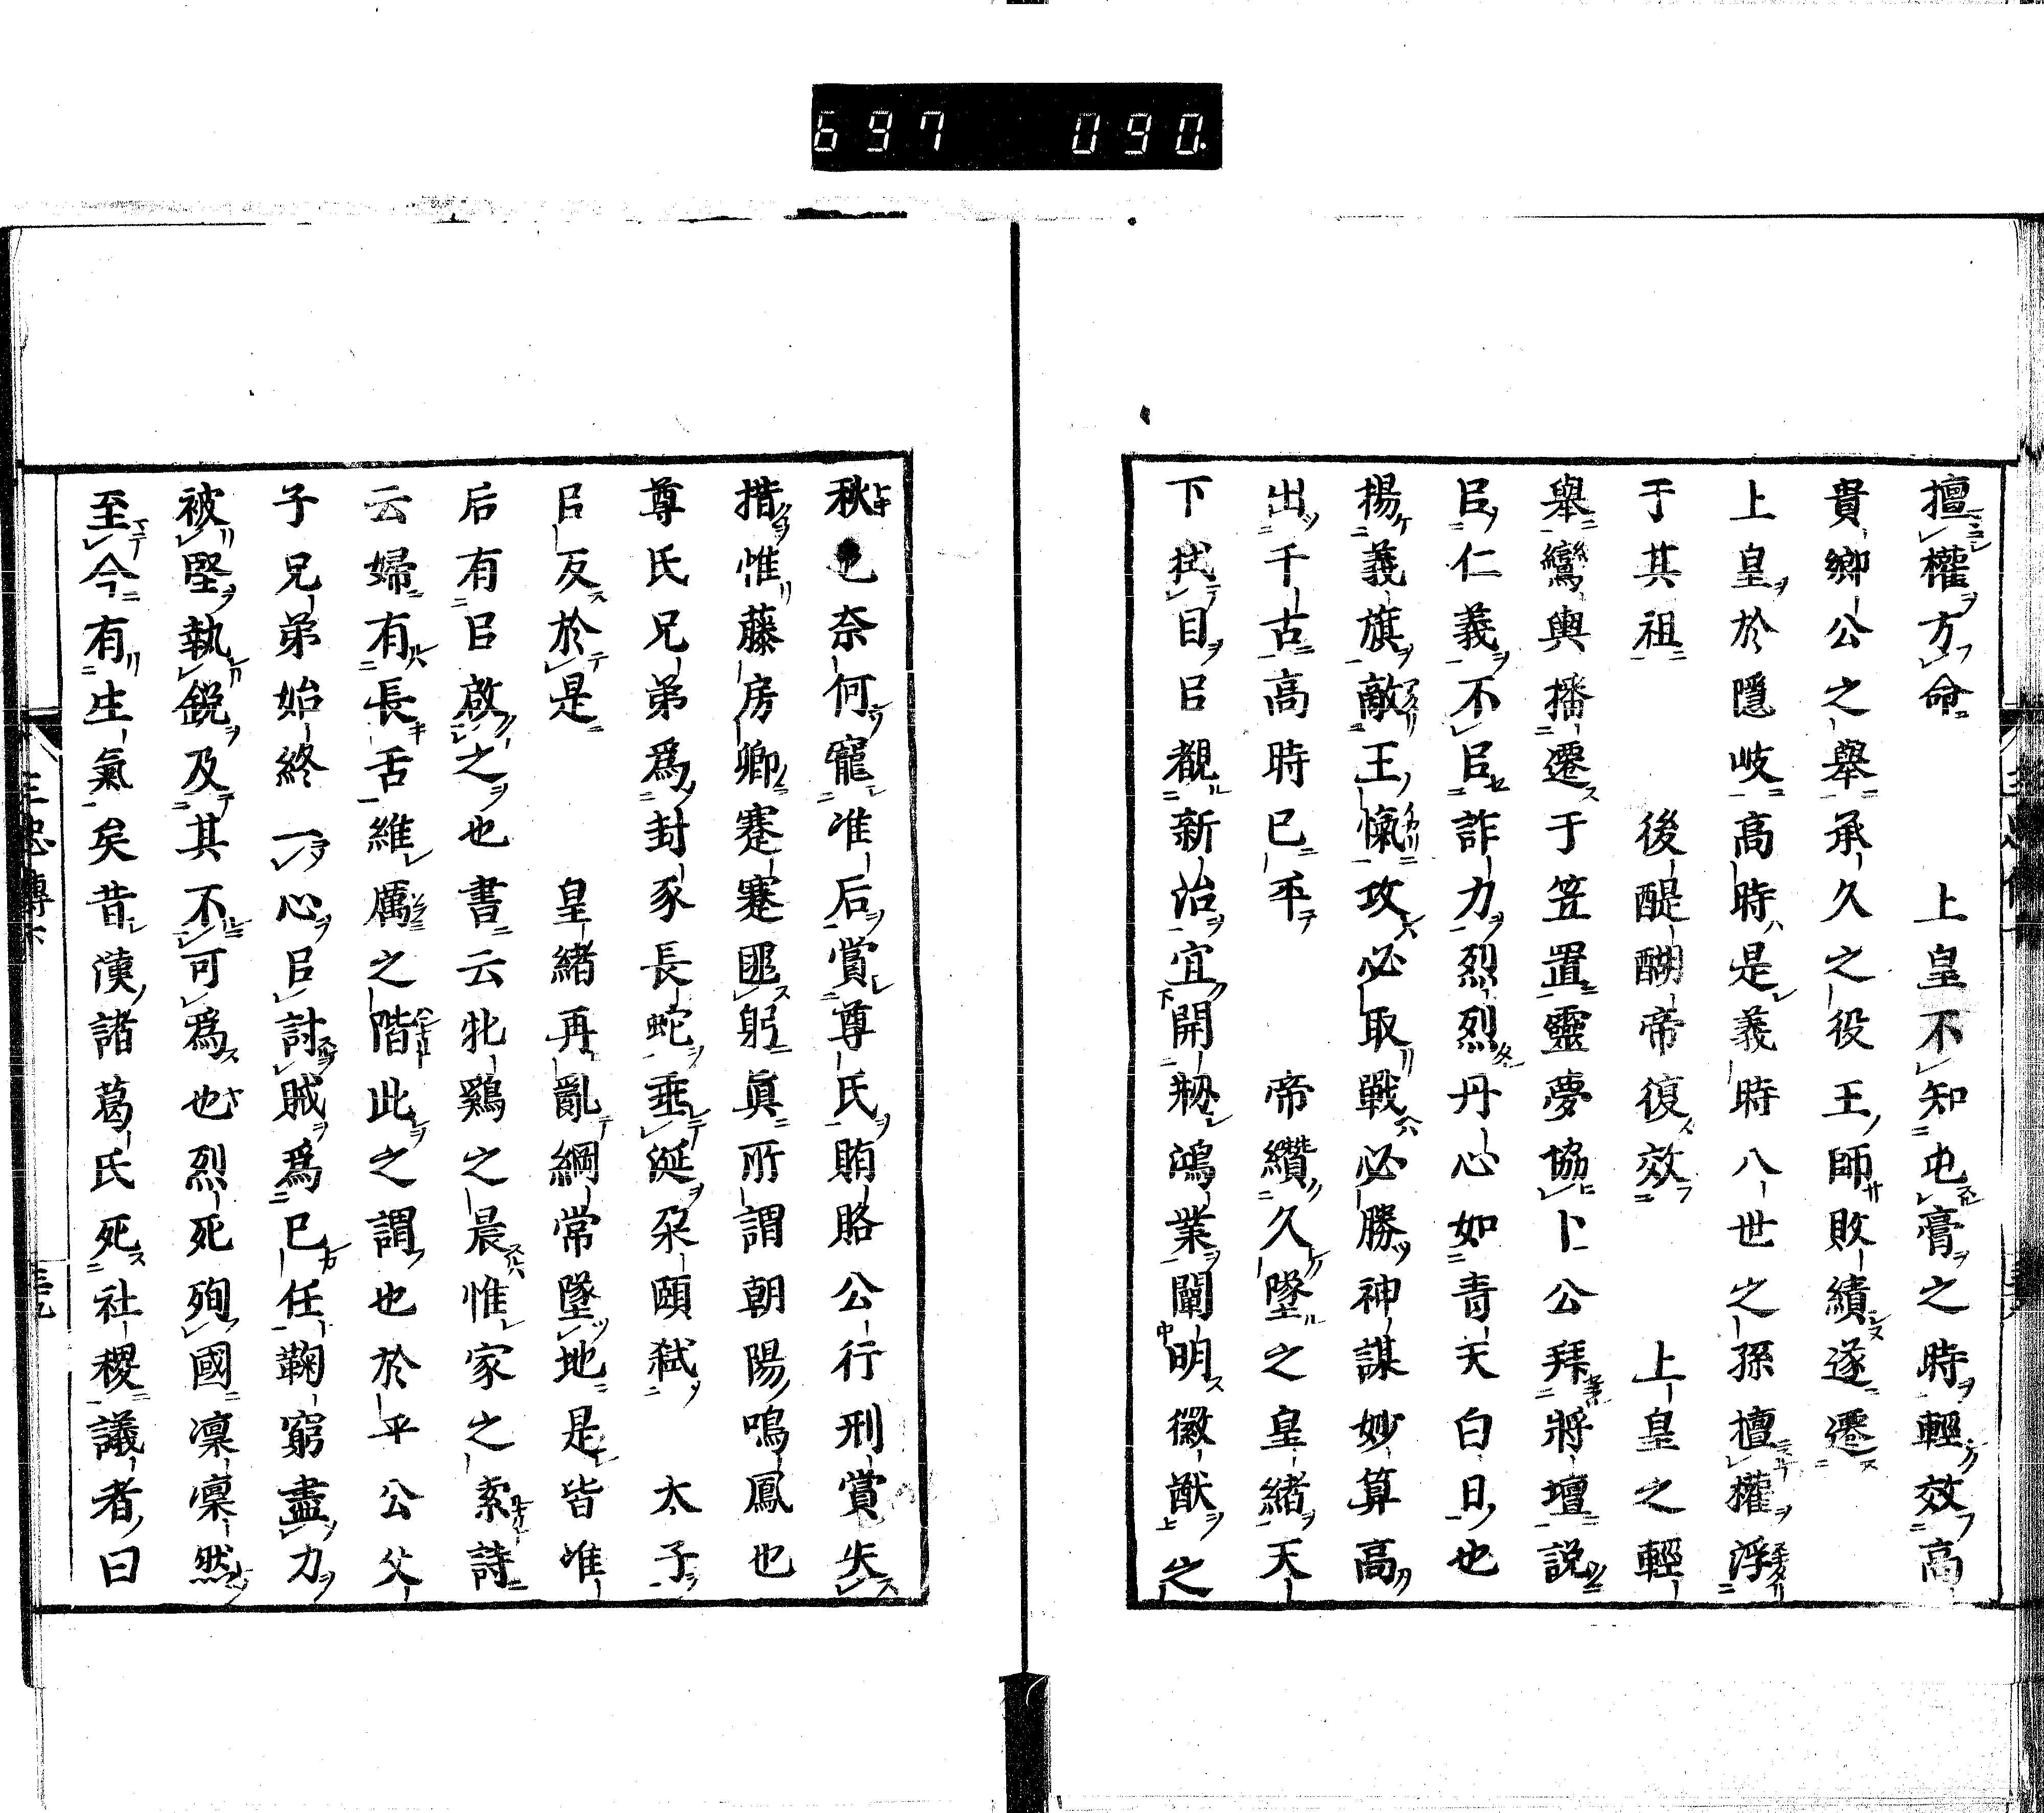 697 090.
擅權方命　上皇不知屯膏之時輕效高
貴鄉公之舉承久之役王師敗績遂遷
上皇於隱岐高時是義時八世之孫擅權浮
于其祖　後醍醐帝復效　上皇之輕
舉鸞輿播遷于笠置靈夢協卜公拜將壇說
㠯仁義不㠯詐力烈烈丹心如青天白日也
揚義旗敵王愾攻必取戰必勝神謀妙算高
出千古高時已平　帝纘久墜之皇緒天
下拭目㠯覩新治宜開剏鴻業闡明徽猷之
秋也奈何寵准后賞尊氏賄賂公行刑賞失
措惟藤房卿蹇蹇匪躬眞所謂朝陽鳴鳳也
尊氏兄弟爲封豕長蛇垂涎朶頤弑　太子
㠯反於是　皇緒再亂綱常墜地是皆准
后有㠯啟之也書云牝鷄之晨惟家之索詩
云婦有長舌維厲之階此之謂也於乎公父
子兄弟始終一心㠯討賊爲己任鞠窮盡力
被堅執銳及其不可爲也烈死殉國凛凛然
至今有生氣矣昔漢諸葛氏死社稷議者曰